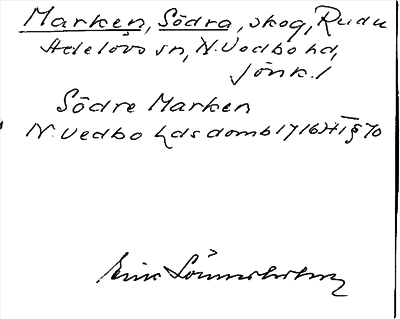 Marken, Södra, skog, Rudu
Adelövs sn, N. Vedbo hd,
Jönk. l
Södre Marken
N. Vedbo hds domb 1716 HT § 70